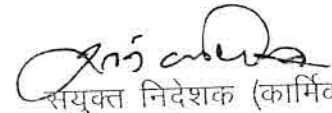 संयुक्त निदेशक (कार्मिक